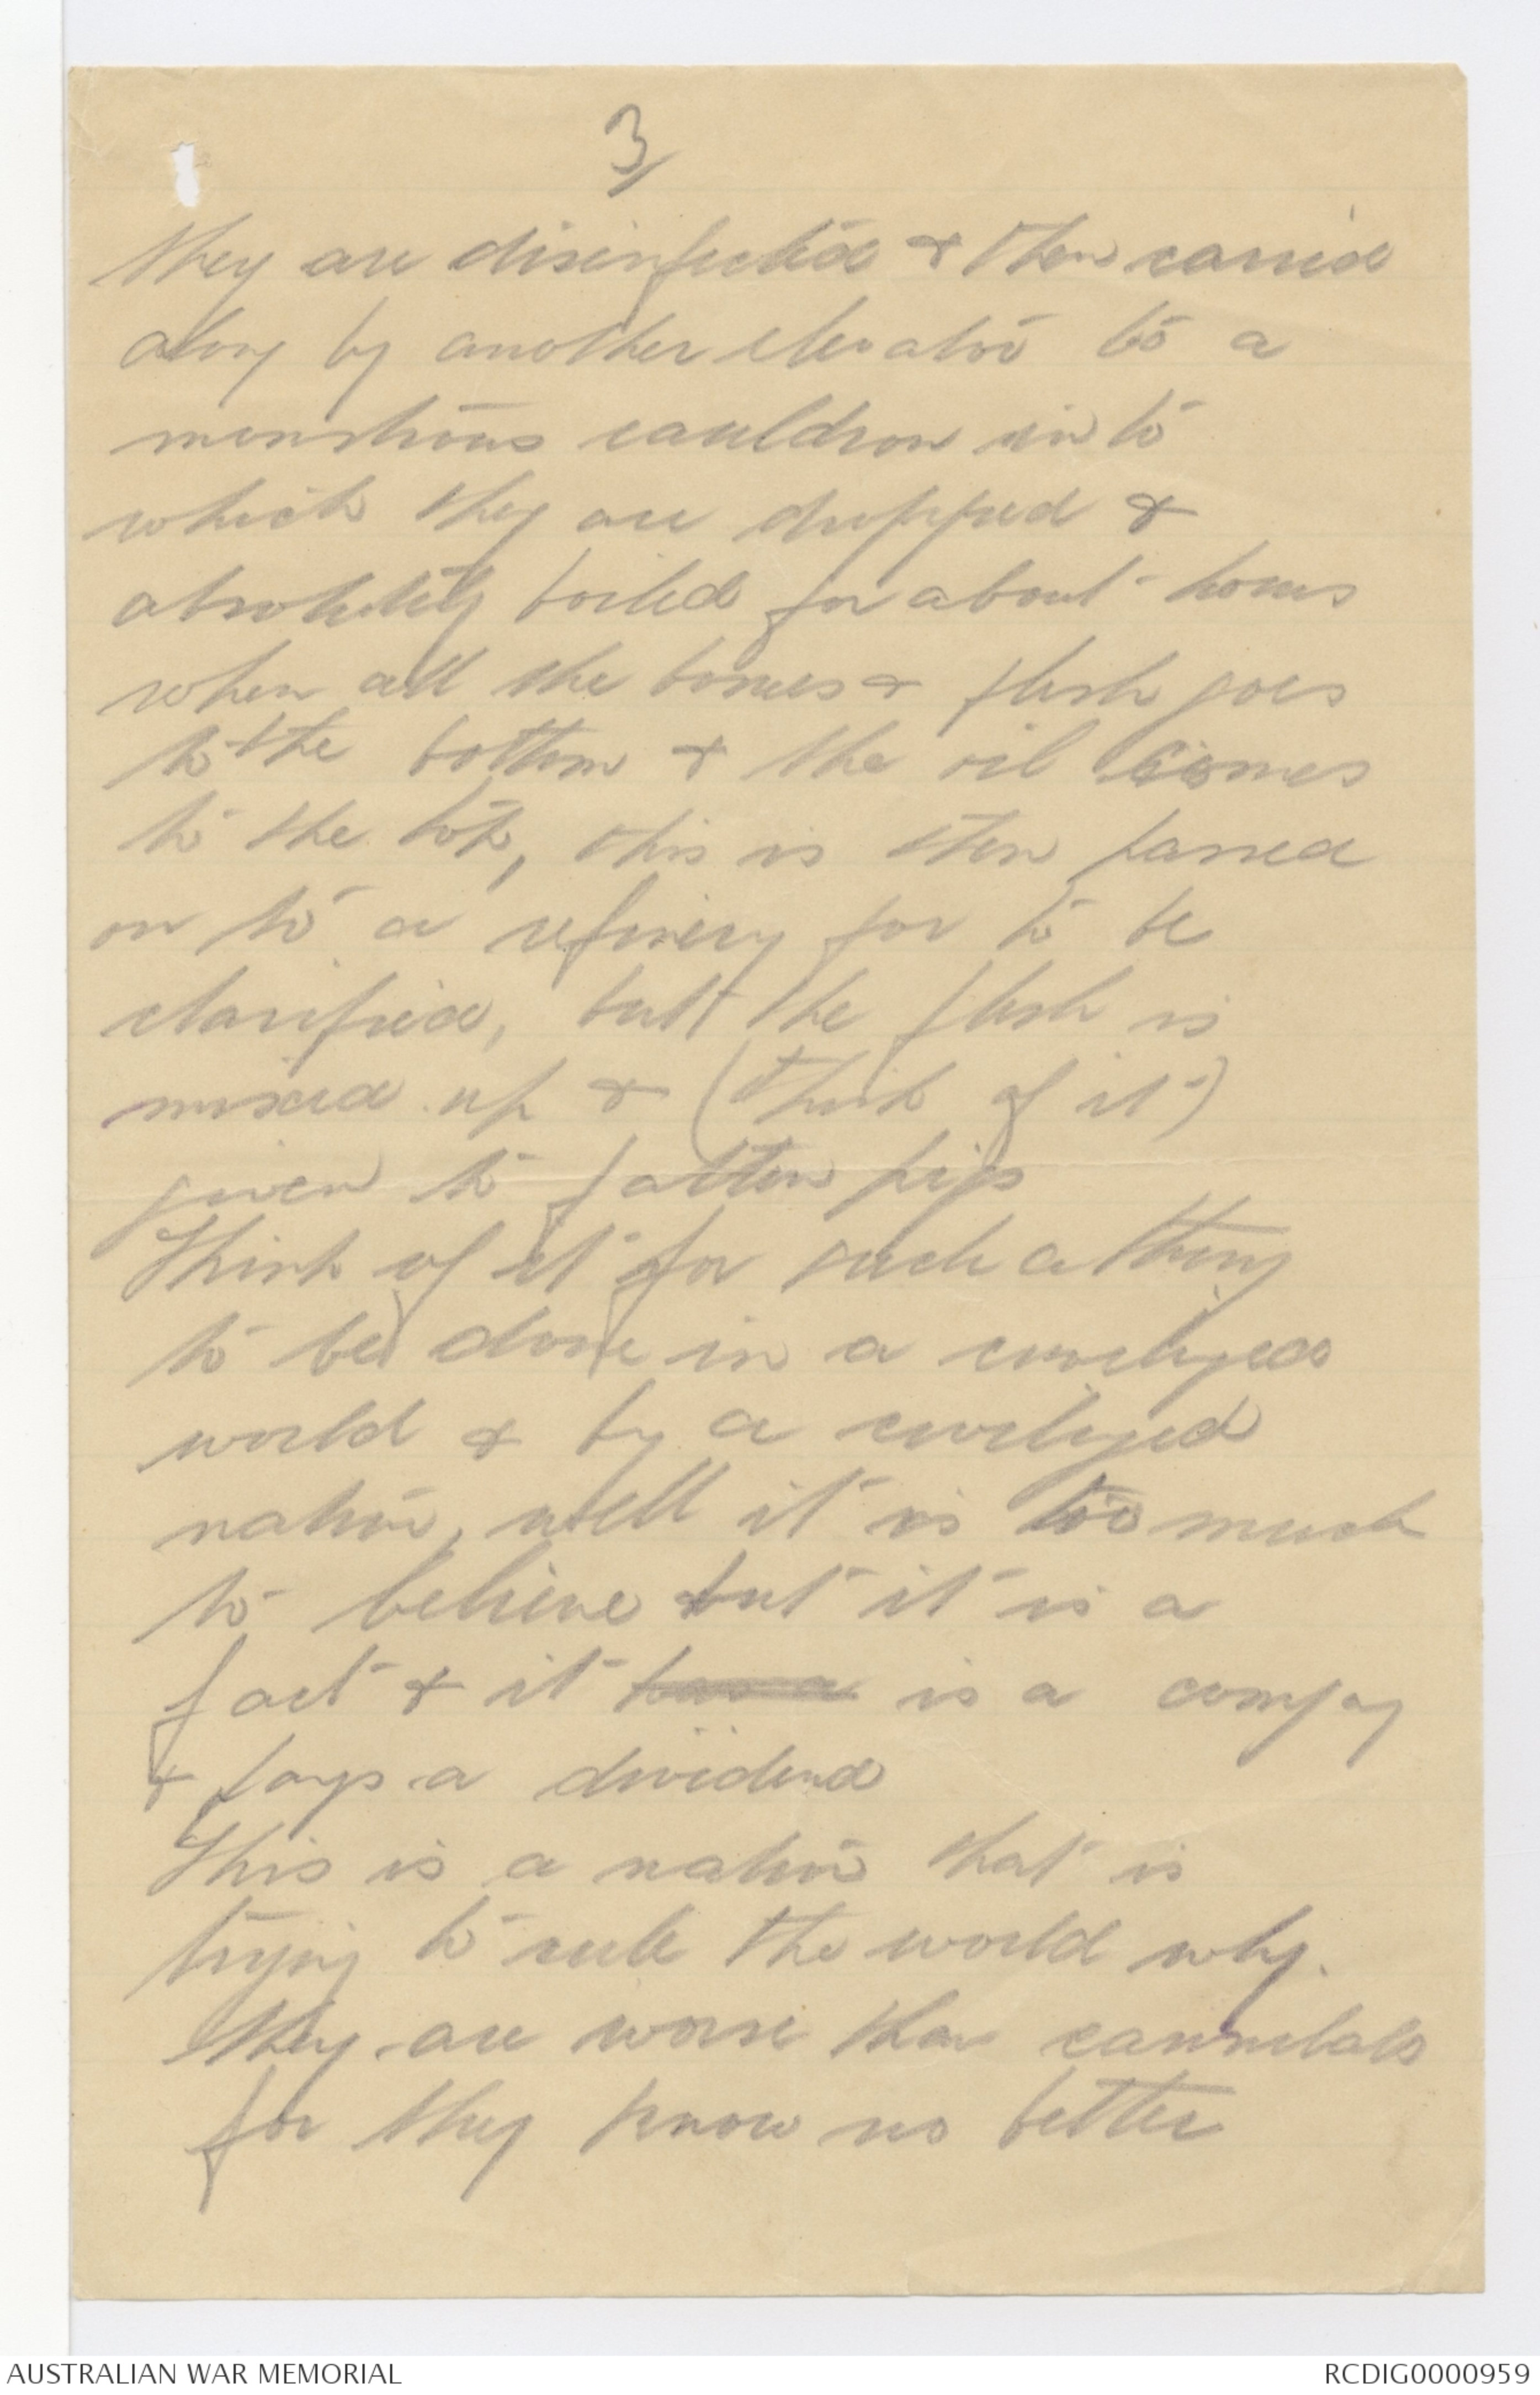 3/
they are disinfected & then carried
along by another elevator to a
monstrous cauldron into
which they are dropped &
absolutely boiled for about hours
when all the bones & flesh goes
to the bottom & the oil comes
to the top, this is then passed
on to a refinery for to be
clarified, but the flesh is
mixed up & (think of it)
given to fatten pigs
Think of it for such a thing
to be done in a
world & by a
nation, well it is too much
to believe but it is a
fact & it is a compay
& pays a dividend
This is a nation that is
trying to rule the world why.
they are worse than cannibals
for they know no better
AUSTRALIAN WAR MEMORIAL
RCDIG0000959